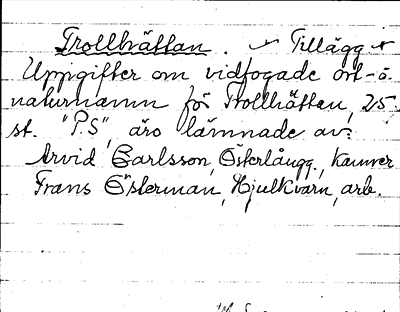 Trollhättan. Tillägg
Uppgifter om vidfogade ort- o.
naturnamn för Trollhättan, 25
st. "P.S", äro lämnade av:
Arvid Carlsson, Österlångg., kamrer
Frans Österman, Hjulkvarn, arb.